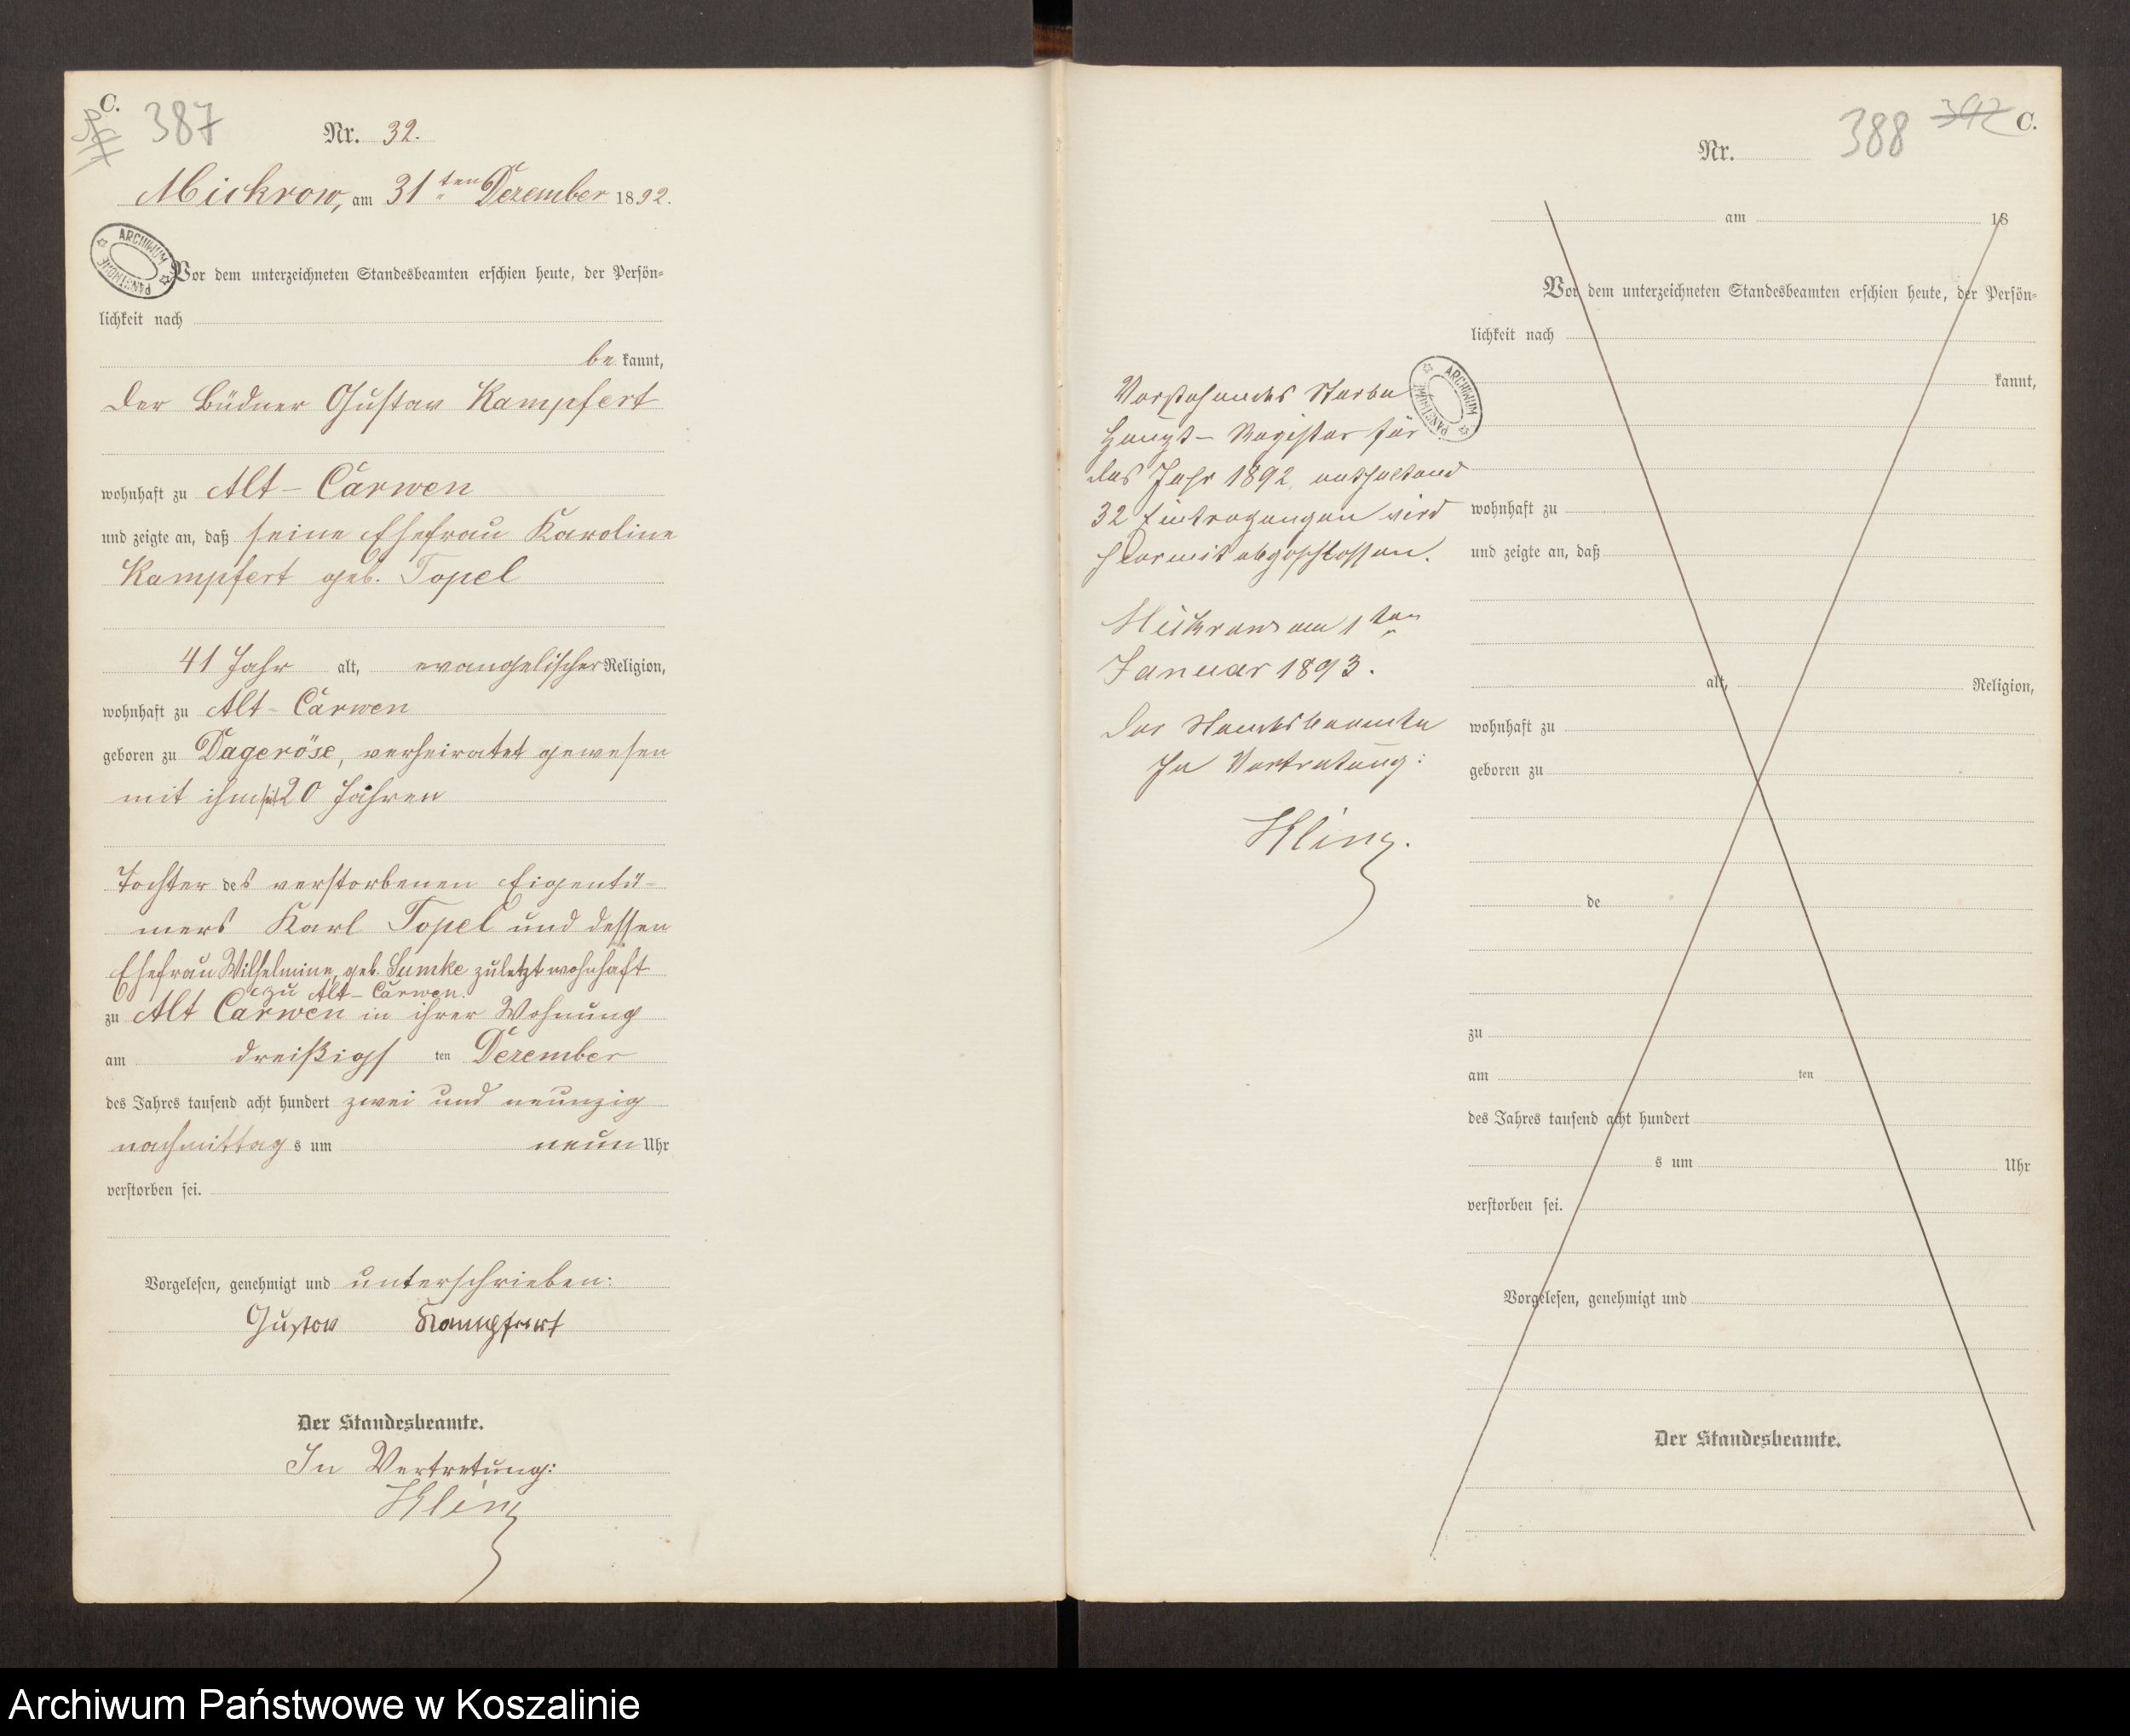 C.
387
Nr. 32.
Mickrow, am 31ten Dezember 1892.
ARCHIWUM PAŃSTWOWE
Vor dem unterzeichneten Standesbeamten erschien heute, der Persön-
lichkeit nach
be kannt,
der Büdner Gustav Kampfert
wohnhaft zu Alt-Carwen
und zeigte an, daß seine Ehefrau Karoline
Kampfert geb. Topel
41 Jahr alt, evangelischer Religion,
wohnhaft zu Alt-Carwen
geboren zu Dageröse, verheiratet gewesen
mit ihm seit 20 Jahren
Tochter des verstorbenen Eigentü-
mers Karl Topel und dessen
Ehefrau Wilhelmine, geb. Sumke zuletzt wohnhaft
zu Alt-Carwen.
zu Alt Carwen in ihrer Wohnung
am dreißigsten Dezember
des Jahres tausend acht hundert zwei und neunzig
nachmittags um neun Uhr
verstorben sei.
Vorgelesen, genehmigt und unterschrieben:
Gustav Kampfert
Der Standesbeamte.
In Vertretung:
Kling
388 392 C.
Nr.
am 18
Vor dem unterzeichneten Standesbeamten erschien heute, der Persön-
lichkeit nach
kannt,
wohnhaft zu
und zeigte an, daß
alt, Religion,
wohnhaft zu
geboren zu
de
zu
am ten
des Jahres tausend acht hundert
s um Uhr
verstorben sei.
Vorgelesen, genehmigt und
Der Standesbeamte.
ARCHIWUM PAŃSTWOWE
Vorstehendes Sterbe
Haupt-Register für
das Jahr 1892, enthaltend
32 Eintragungen wird
hiermit abgeschlossen.
Mickrow am 1ten
Januar 1893.
Der Standesbeamte
In Vertretung:
Kling.
Archiwum Państwowe w Koszalinie